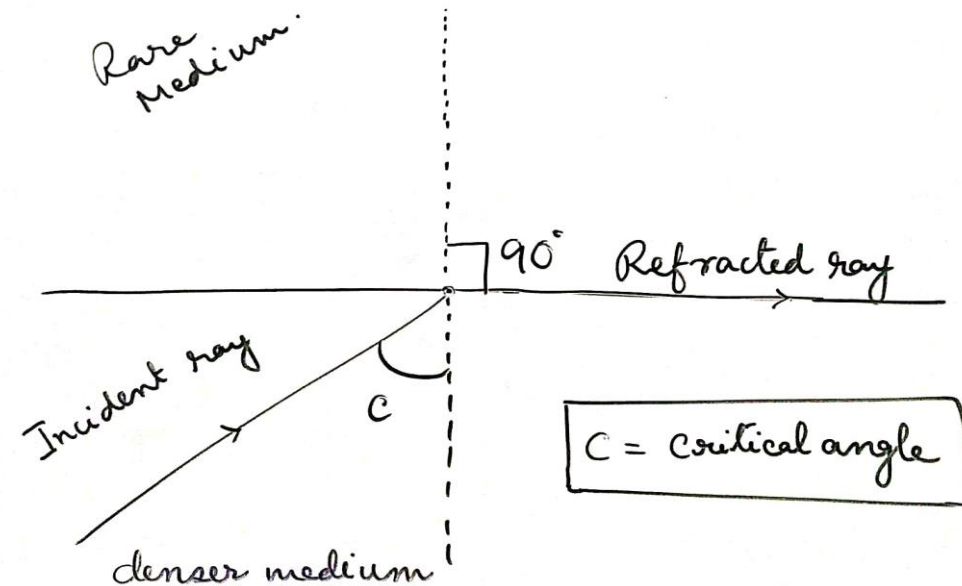 Rare
Medium.
90°
Refracted ray
Incident ray
C
C = critical angle
denser medium